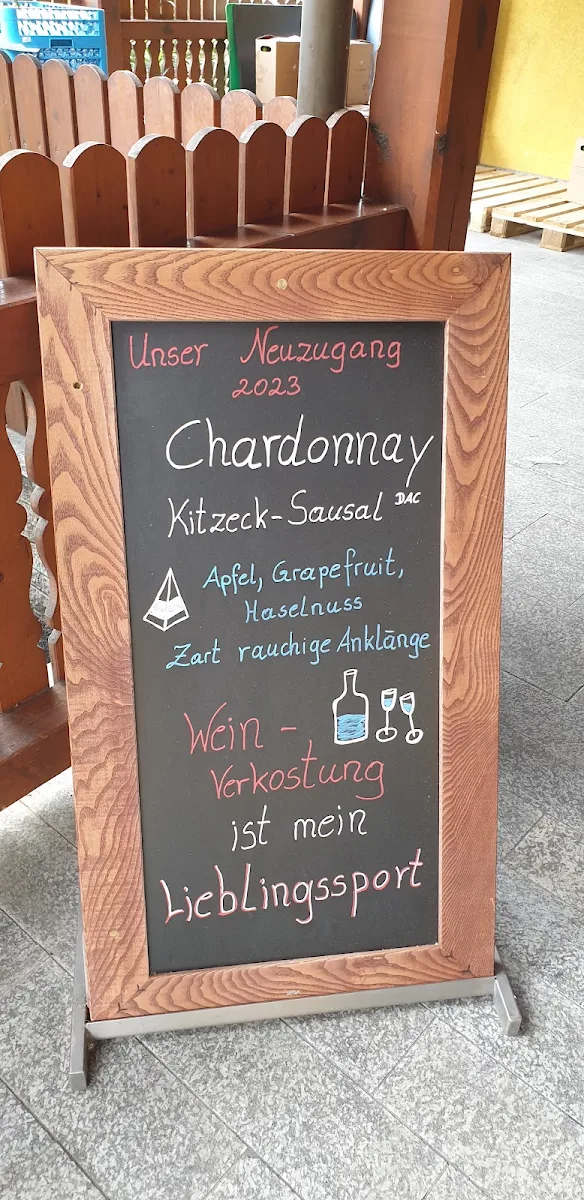 Unser Neuzugang
2023
Chardonnay
Kitzeck-Sausal DAC
Apfel, Grapefruit,
Haselnuss
Zart rauchige Anklänge
Wein-
Verkostung
ist mein
Lieblingssport